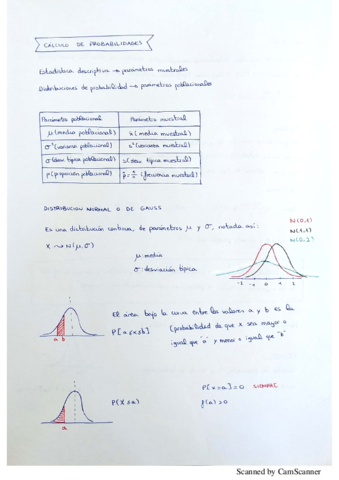 CÁLCULO DE PROBABILIDADES
Estadística descriptiva → parámetros muestrales
Distribuciones de probabilidad → parámetros poblacionales
Parámetro poblacional Parámetro muestral
μ (media poblacional) x̄ (media muestral)
σ² (varianza poblacional) s² (varianza muestral)
σ (desv. típica poblacional) s (desv. típica muestral)
p (proporción poblacional) p̂ = (frecuencia muestral)
DISTRIBUCIÓN NORMAL O DE GAUSS
Es una distribución continua, de parámetros μ y σ, notada así:
X ~> N(μ, σ)
μ: media
σ: desviación típica
N(0,1)
N(1,1)
N(0,2)
-2 -1 0 1 2 3
El área bajo la curva entre los valores a y b es la
P[a≤x≤b] (probabilidad de que x sea mayor o
igual que "a" y menor o igual que "b"
a b
P[x=a]=0 SIEMPRE
P(X≤a) f(a)=0
a
Scanned by CamScanner